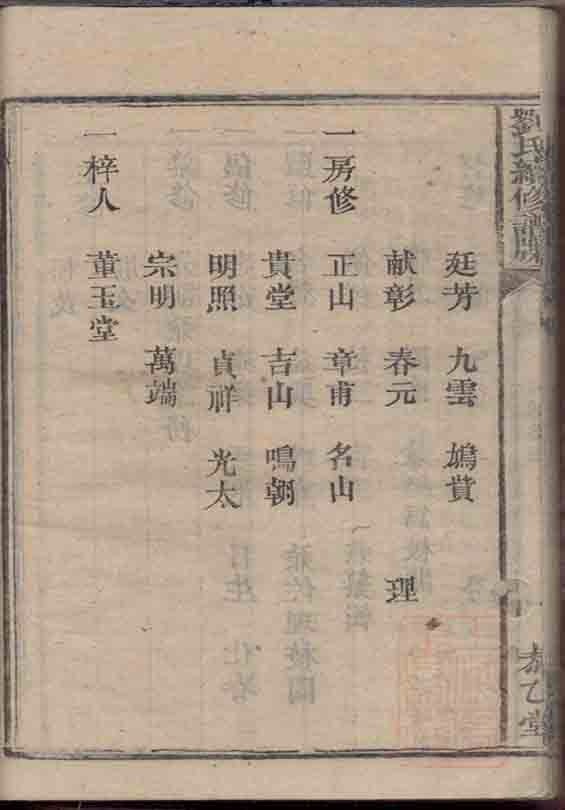 劉氏續修譜牒
一 㤗乙堂
廷芳 九雲 鳩貲
献彰 春元 理
一房修 正山 章甫 名山
貴堂 吉山 鳴朝
明照 貞祥 光太
宗明 萬端
一梓人 董玉堂